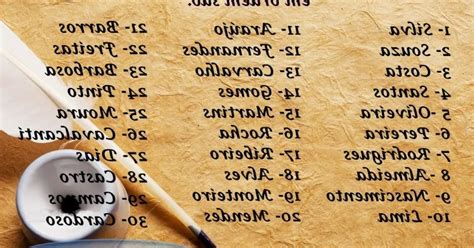 em ordem são:
1- Silva
2- Souza
3- Costa
4- Santos
5-Oliveira
6- Pereira
7- Rodrigues
8- Almeida
9- Nascimento
10- Lima
11- Araújo
12- Fernandes
13- Carvalho
14- Gomes
15- Martins
16- Rocha
17- Ribeiro
18- Alves
19- Monteiro
20- Mendes
21- Barros
22- Freitas
23- Barbosa
24- Pinto
25- Moura
26- Cavalcanti
27- Dias
28- Castro
29- Campos
30- Cardoso